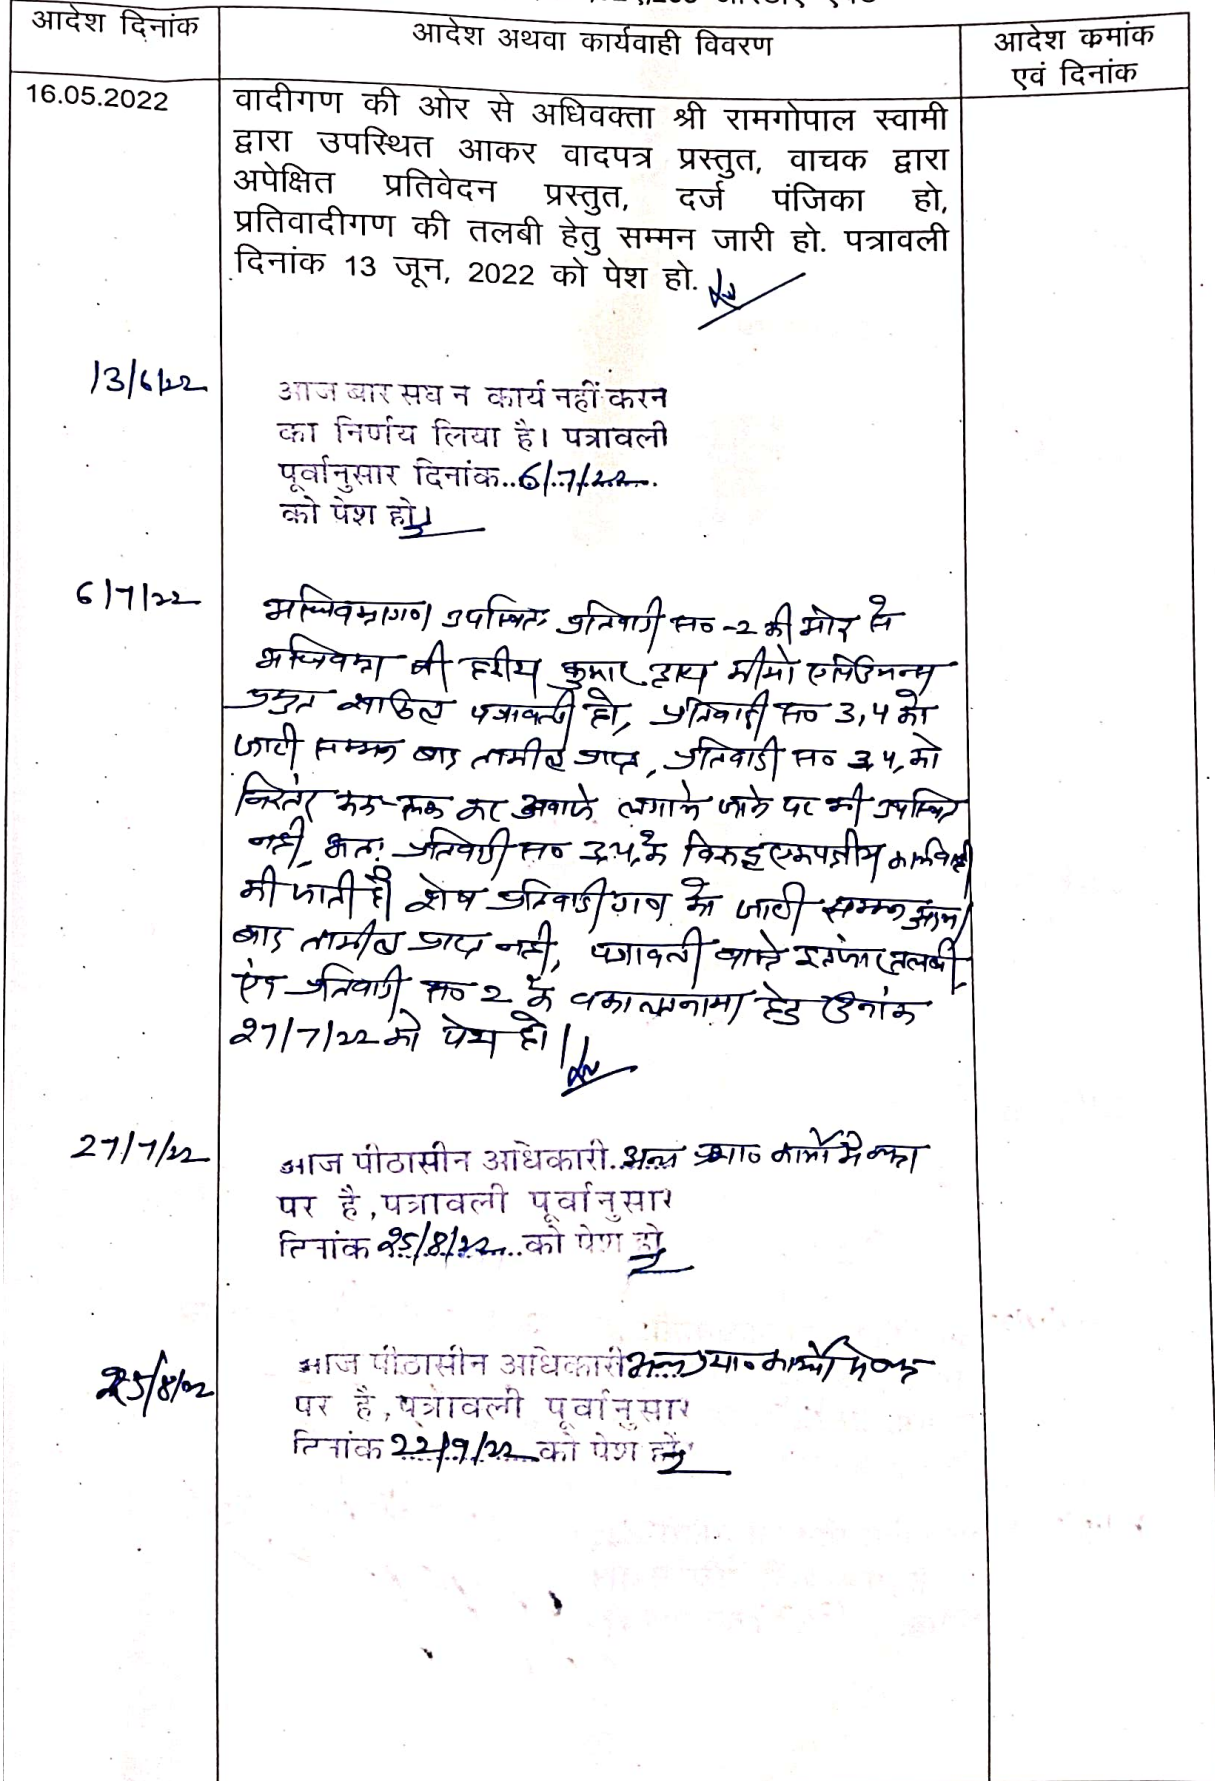 आदेश दिनांक
आदेश अथवा कार्यवाही विवरण
आदेश कमांक
एवं दिनांक
16.05.2022
वादीगण की ओर से अधिवक्ता श्री रामगोपाल स्वामी
द्वारा उपस्थित आकर वादपत्र प्रस्तुत, वाचक द्वारा
अपेक्षित प्रतिवेदन प्रस्तुत, दर्ज पंजिका हो,
प्रतिवादीगण की तलबी हेतु सम्मन जारी हो. पत्रावली
दिनांक 13 जून, 2022 को पेश हो.
13/6/22
आज बार सघ न कार्य नहीं करन
का निर्णय लिया है। पत्रावली
पूर्वानुसार दिनांक..6/7/22
को पेश हो।
6/7/22
उपस्थित प्रतिवादी स०-2 की ओर से
अधिवक्ता श्री कुमार
शामिल पत्रावली हो, प्रतिवादी स० 3,4 को
जारी सम्मन बाद तामील प्राप्त, प्रतिवादी स० 3,4, को
रूक-रूक कर आवाजे लगाने जाने पर भी उपस्थित
नही, अतः प्रतिवादी स० 3,4, के विरूद्ध एकपक्षीय कार्यवाही
की जाती है। शेष प्रतिवादीगण को जारी सम्मन
बाद तामील प्राप्त नही, पत्रावली वास्ते इन्तजार तलबी
एंव प्रतिवादी स० 2 के वकालतनामा हेतु दिनांक
27/7/22 को पेश हो।
27/7/22
आज पीठासीन अधिकारी..अन्य
पर है, पत्रावली पूर्वानुसार
दिनांक 25/8/22 को पेश हो
25/8/22
आज पीठासीन अधिकारी अन्य
पर है, पत्रावली पूर्वानुसार
दिनांक 22/9/22 को पेश हो